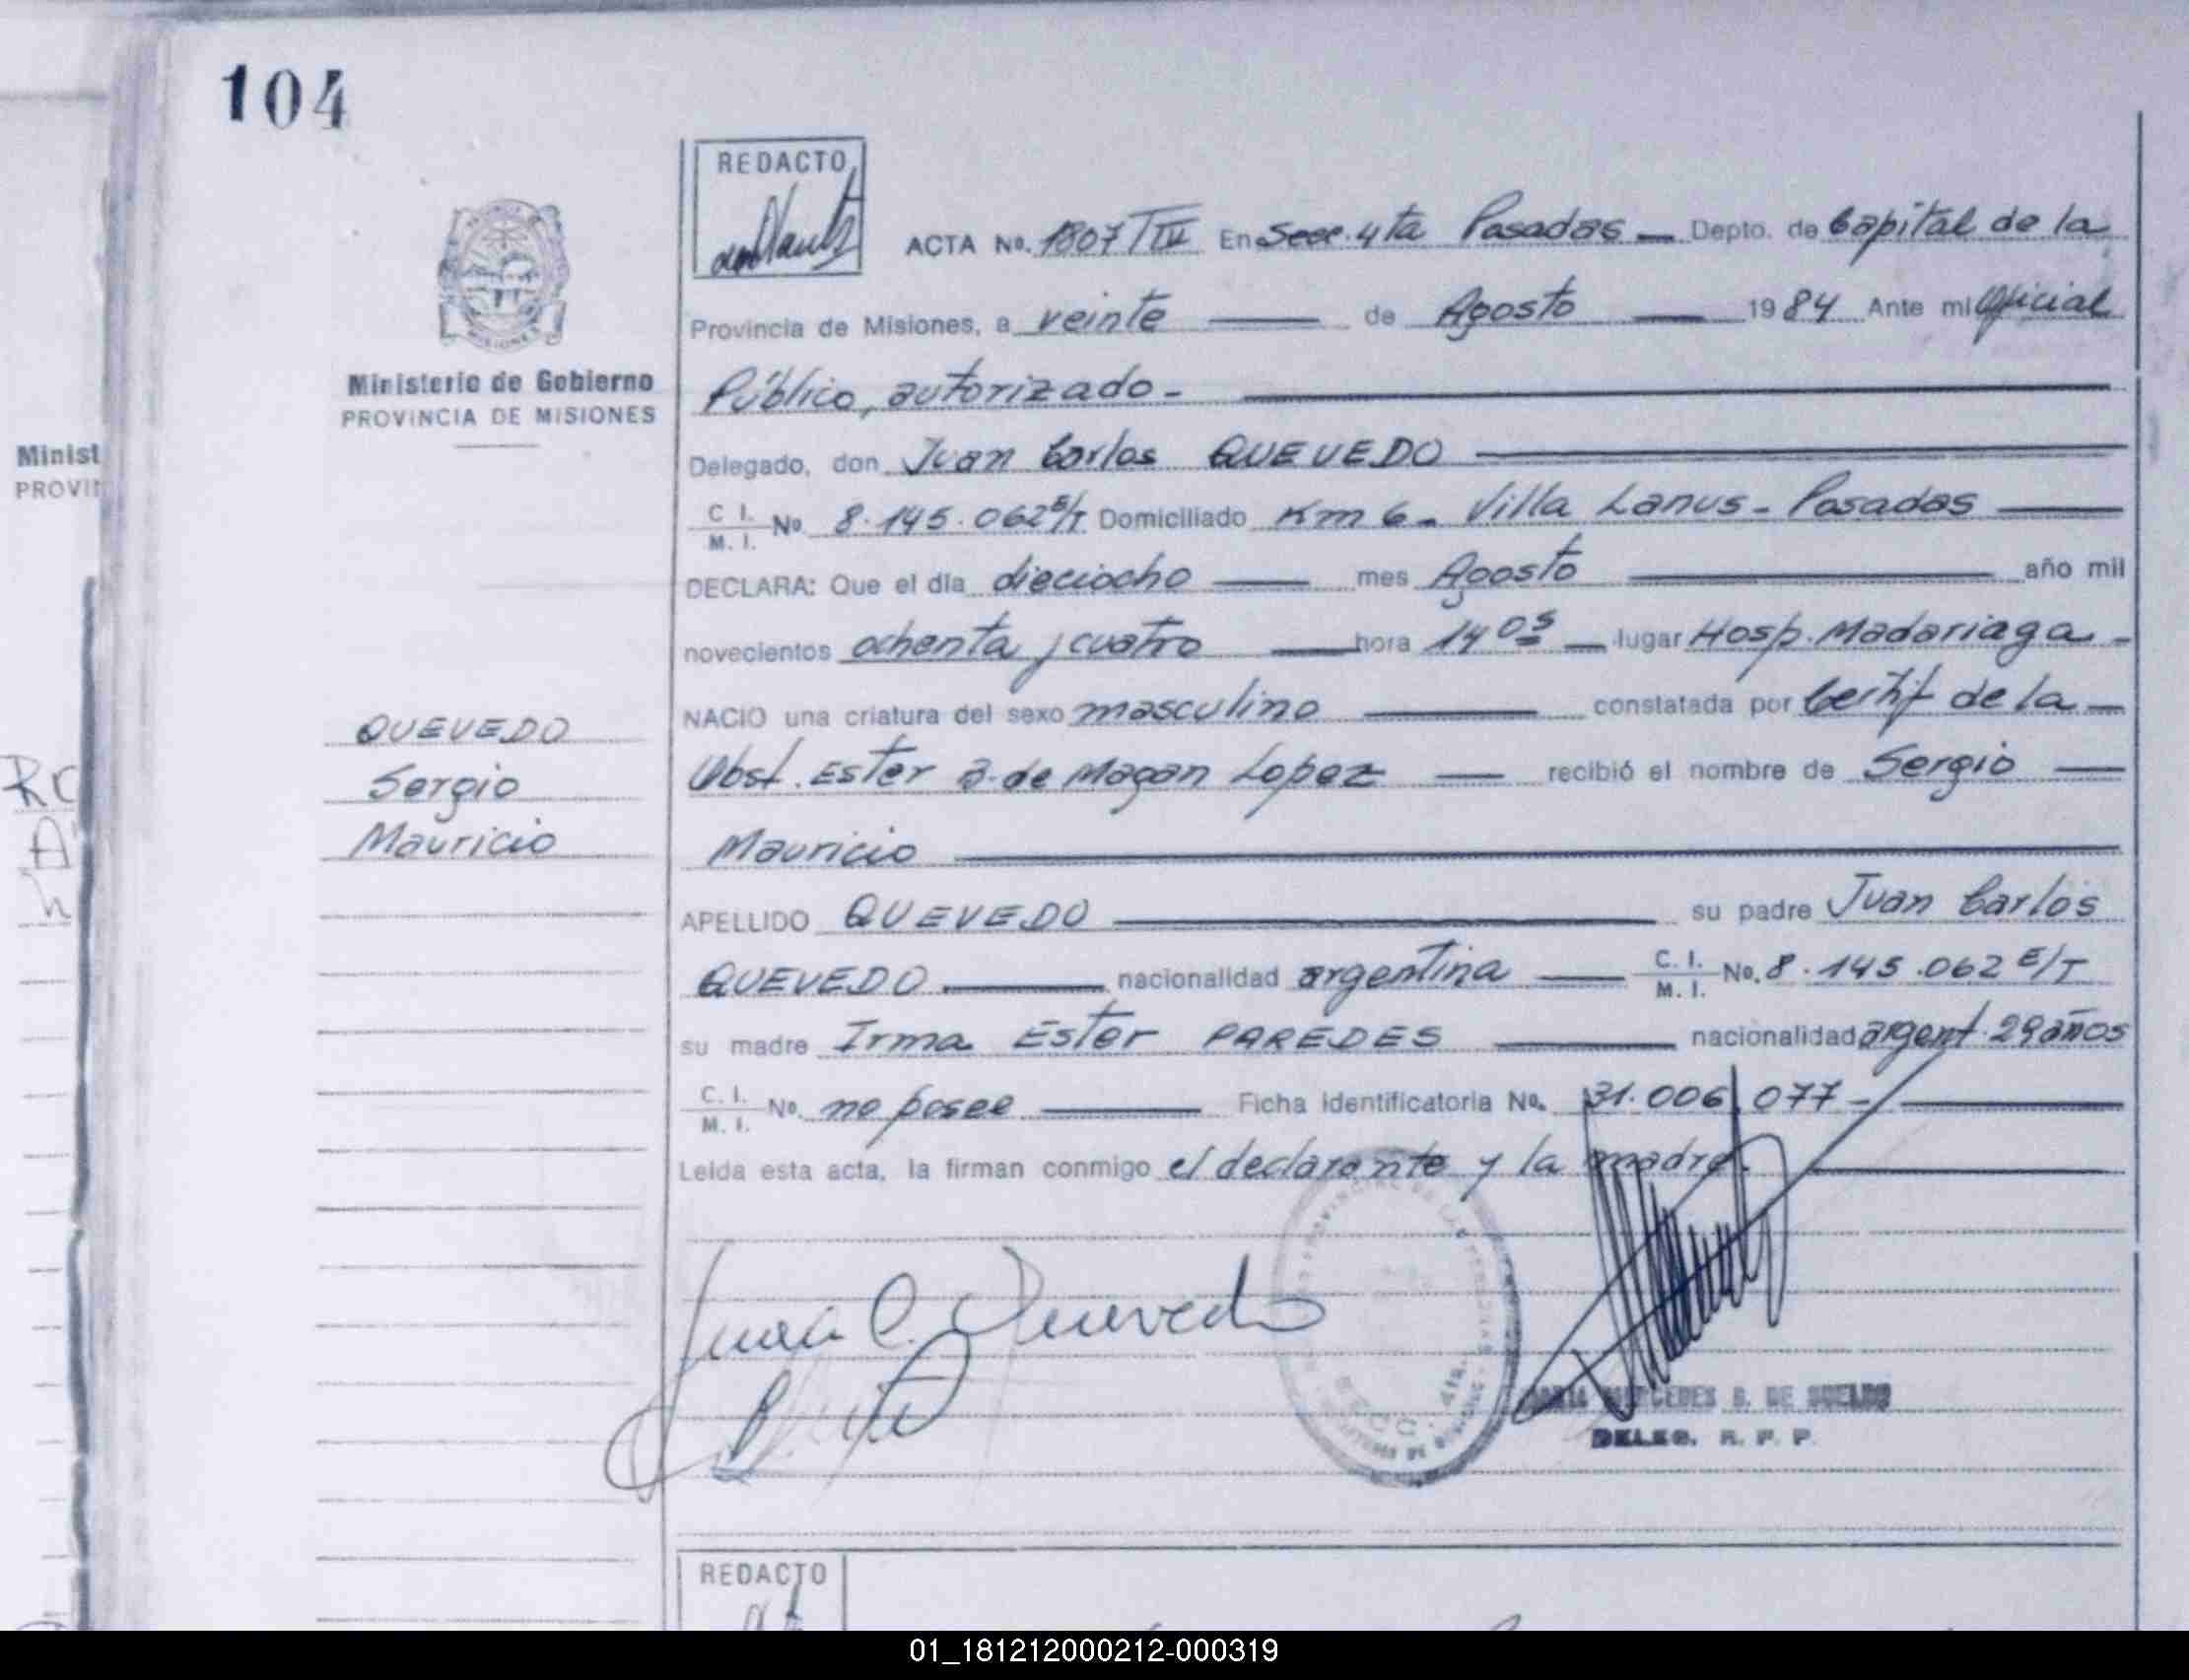 104
REDACTO
ACTA No. 1807/IV En Secc. 4ta Posadas — Depto. de Capital de la
Provincia de Misiones, a veinte — de Agosto — 1984 Ante mi Oficial
Público, autorizado-
Ministerio de Gobierno
PROVINCIA DE MISIONES
Delegado, don Juan Carlos QUEVEDO
Minist
PROVIN
C. I.
M. I. No 8.145.062 E/T Domiciliado Km 6- Villa Lanus- Posadas
DECLARA: Que el día dieciocho — mes Agosto — año mil
novecientos ochenta y cuatro — hora 14 05 — lugar Hosp. Madariaga -
NACIO una criatura del sexo masculino — constatada por Certif de la —
QUEVEDO
Sergio
Mauricio
Obst. Ester de Magan Lopez — recibió el nombre de Sergio —
Mauricio
APELLIDO QUEVEDO — su padre Juan Carlos
QUEVEDO — nacionalidad argentina — C. I.
M. I. No. 8.145.062 E/T
su madre Irma Ester PAREDES — nacionalidad argent. 29 años
C. I.
M. I. No. no posee — Ficha Identificatoria No. 31.006.077-
Leída esta acta, la firman conmigo el declarante y la madre.
Juan C. Quevedo
MERCEDES B. DE
DELEG. R. P. P.
REDACTO
01_181212000212-000319